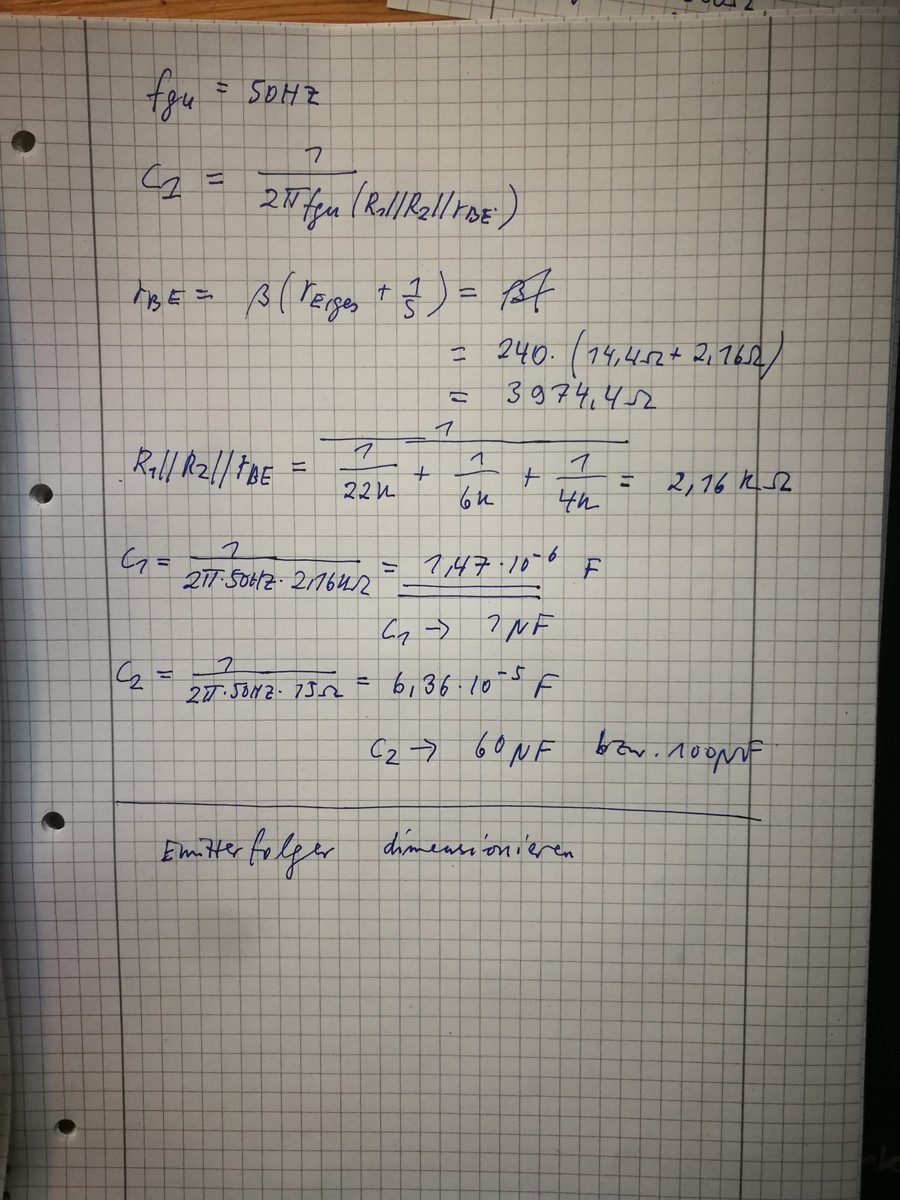 fgu = 50Hz
C1 = 1 / (2π fgu (R1//R2//rBE))
rBE = β(rE,ges + 1/S) =
= 240 · (14,4Ω + 2,16Ω)
= 3974,4Ω
R1//R2//rBE = 1 / (1/22k + 1/6k + 1/4k) = 2,16 kΩ
C1 = 1 / (2π·50Hz·2,16kΩ) = 1,47·10⁻⁶ F
C1 → 1µF
C2 = 1 / (2π·50Hz·15Ω) = 6,36·10⁻⁵ F
C2 → 60µF bzw. 100µF
Emitterfolger dimensionieren